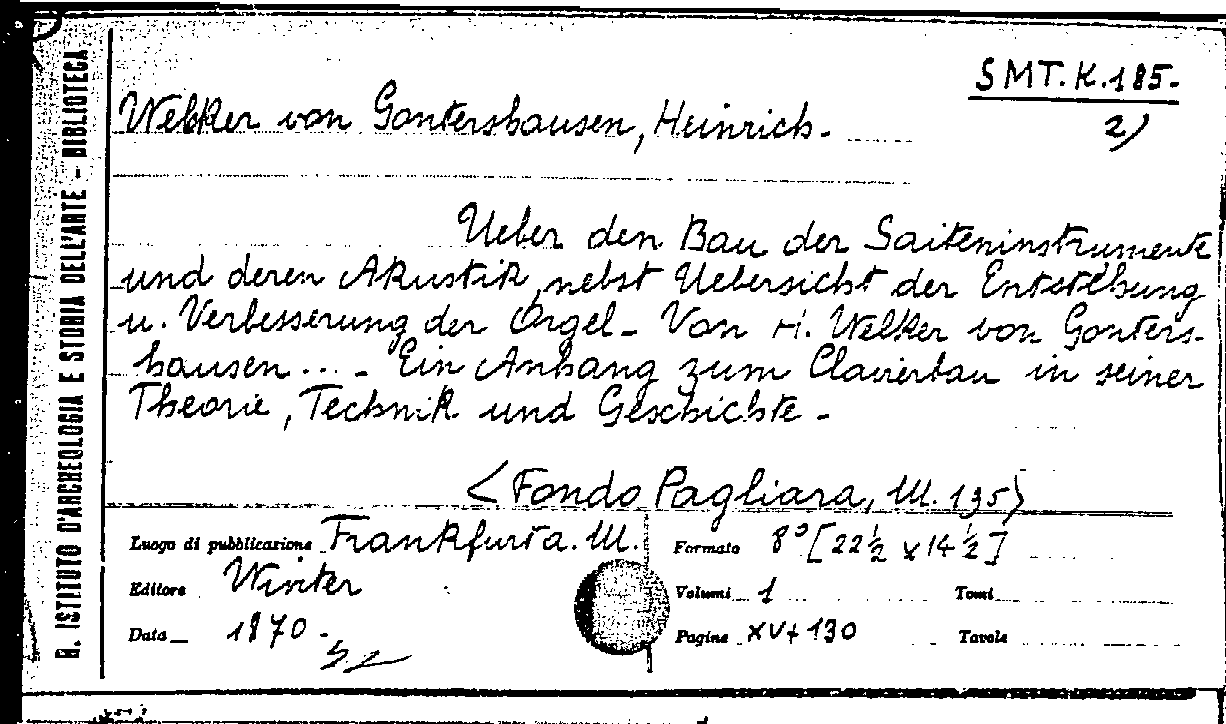 R. ISTITUTO D'ARCHEOLOGIA E STORIA DELL'ARTE - BIBLIOTECA
SMT.K.185.
2)
Welker von Gontershausen, Heinrich.
Ueber den Bau der Saiteninstrumente
und deren Akustik, nebst Uebersicht der Entstehung
u. Verbesserung der Orgel - Von H. Welker von Gonters-
hausen... - Ein Anhang zum Clavierbau in seiner
Theorie, Technik und Geschichte -
<Fondo Pagliara, M. 135>
Luogo di pubblicazione Frankfurt a. M. Formato 8° [22 ½ x 14 ½]
Editore Winter Volumi 1 Tomi
Data 1870. Pagine XV+130 Tavole